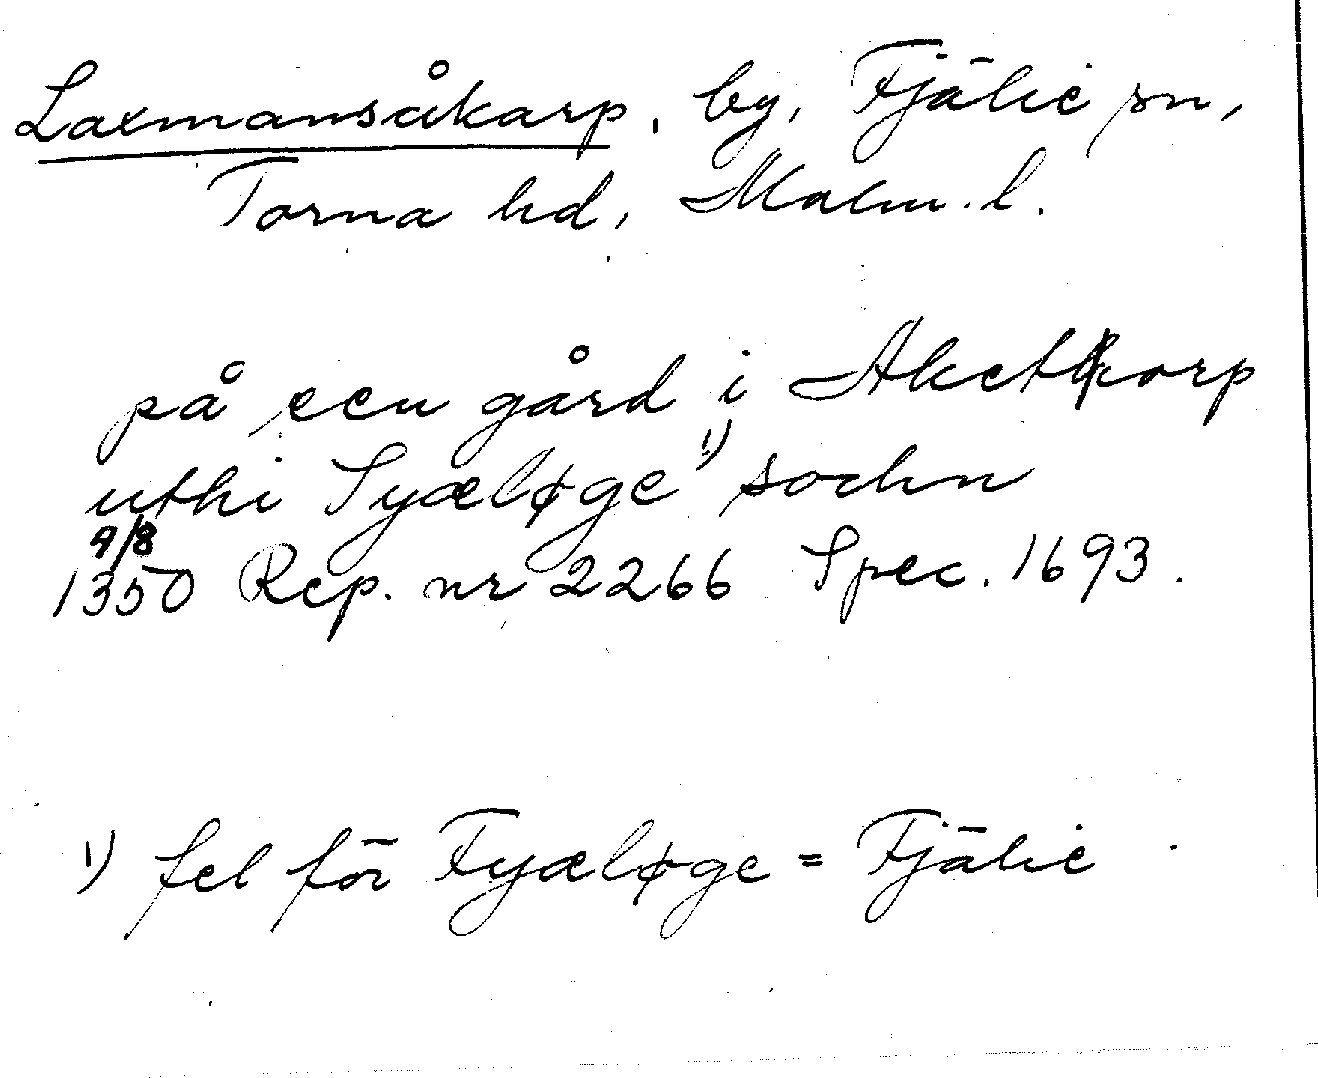 Laxmansåkarp, by, Fjälie sn,
Torna hd, Malm. l.
på een gård i
uthi Syæløge ¹⁾ sochn
9/8
1350 Rep. nr 2266 Spec. 1693.
1) fel för Fyæløge = Fjälie